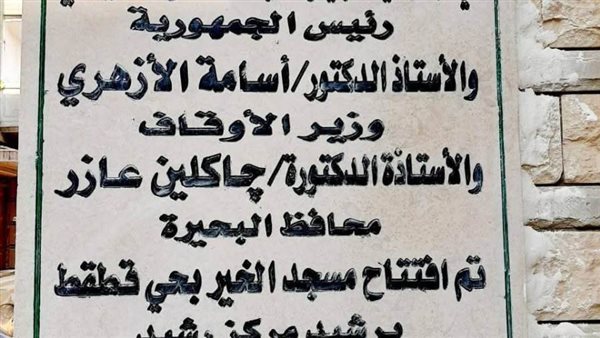 رئيس الجمهورية
والأستاذ الدكتور/أسامة الأزهري
وزير الأوقاف
والأستاذة الدكتورة/چاكلين عازر
محافظ البحيرة
تم افتتاح مسجد الخير بحي قطقط
برشيد مركز رشيد